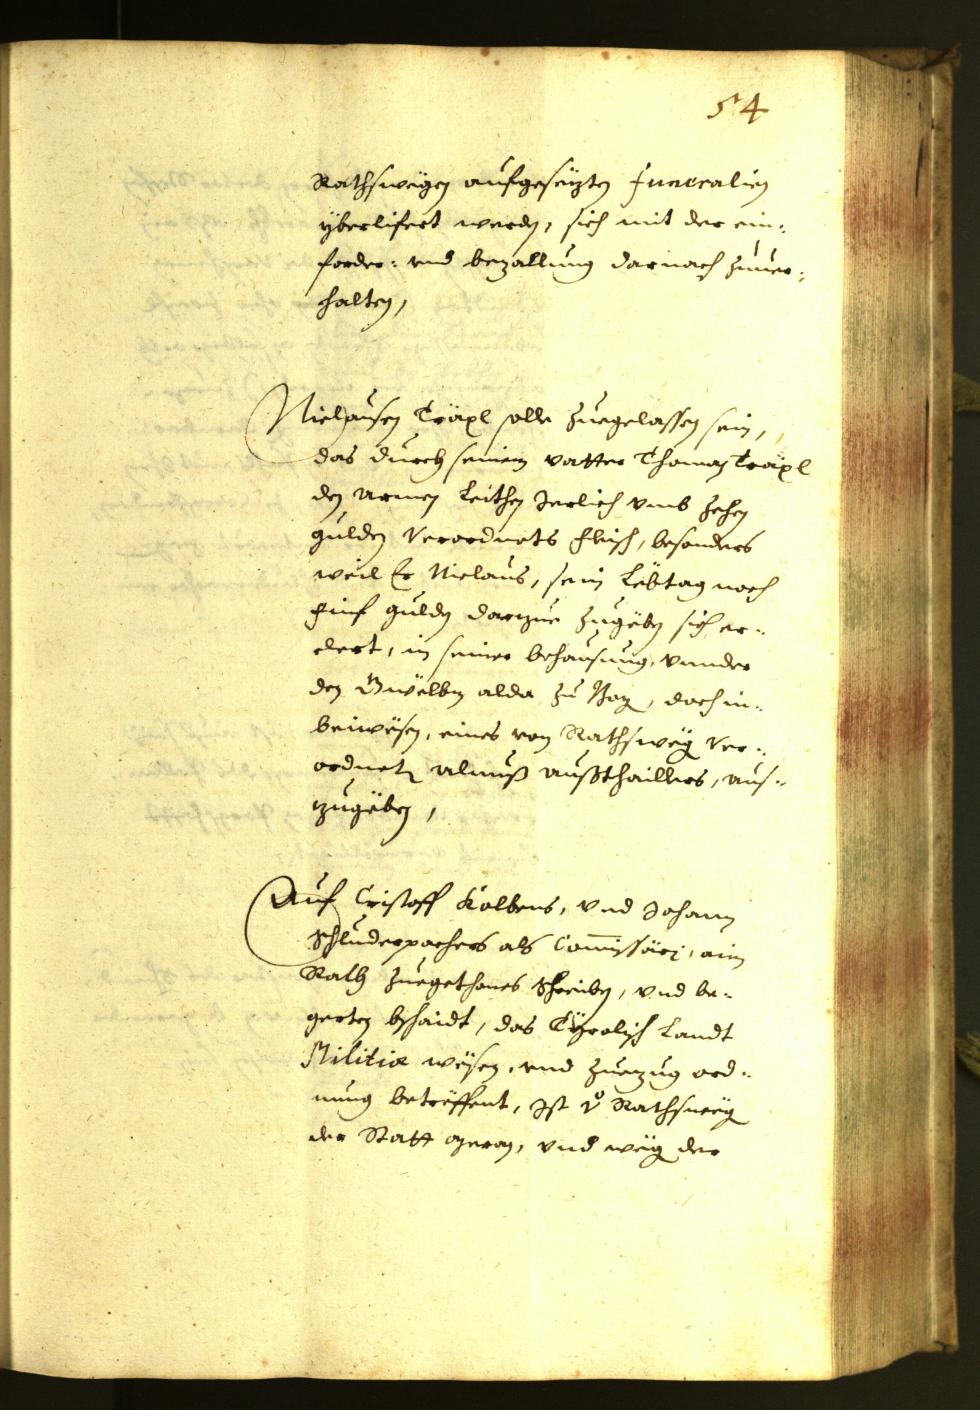 54
Rathswegen aufgesezten Funeralien
yberlifert werden, sich mit der ein-
forder: und bezallung darnach zuuer-
halten,
Niclausen Träxl solle zuegelassen sein,
das durch seinen vatter Thoman Träxl
den armen Leithen Jerlich umb zehen
gulden verordnets fleisch, besonders
weil Er Niclaus, sein Lebtag noch
finf gulden darzue zugeben sich er-
clert, in seiner behausung, unnder
den Gwelben alda zu Bozen, doch in-
beiwesen, eines von Rathsweg ver-
ordneten almueß außthaillers, aus-
zugeben,
Auf Cristoff Kolbens, und Johann
Schluderpachers als Comissari, ain
Rath zuegethones schreiben, und be-
gerten bschaidt, das Tyrolisch Landt
Militia wesen, und zuezug ord-
nung betreffent, Ist von Rathsweg
der Statt, und weg der